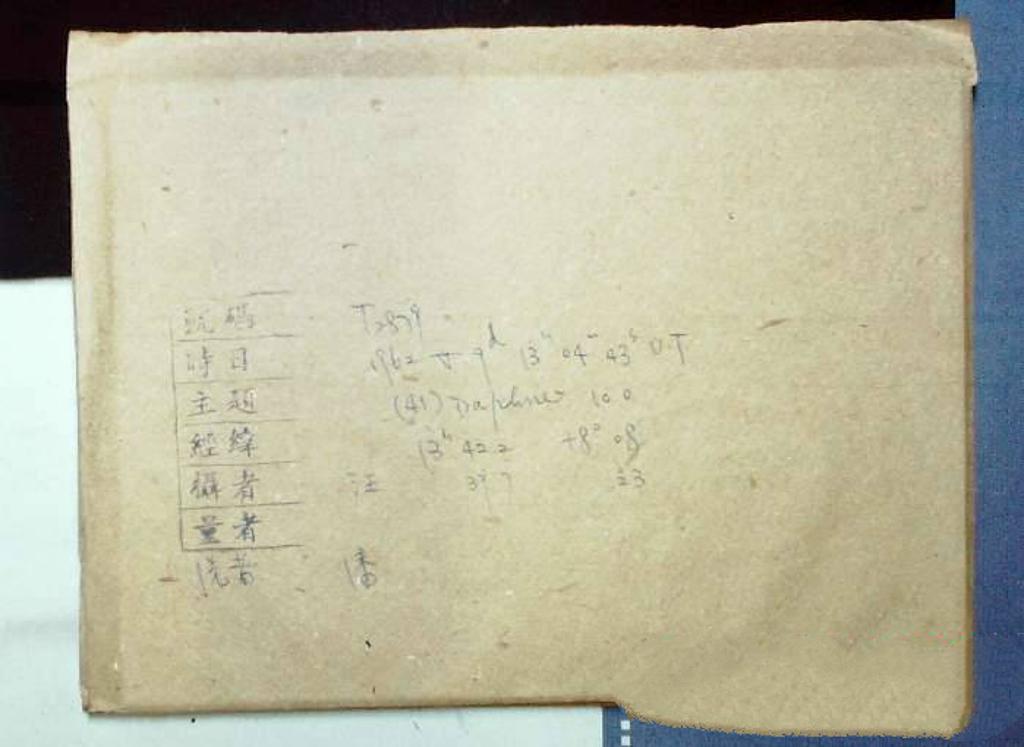 號碼 T2879
時日 1962 V 9ᵈ 13ʰ 04ᵐ 43ˢ U.T
主題 (41) Daphne 10.0
經緯 13ʰ 42.2 +8° 08
攝者 汪 39.7 23
量者
洗者 潘